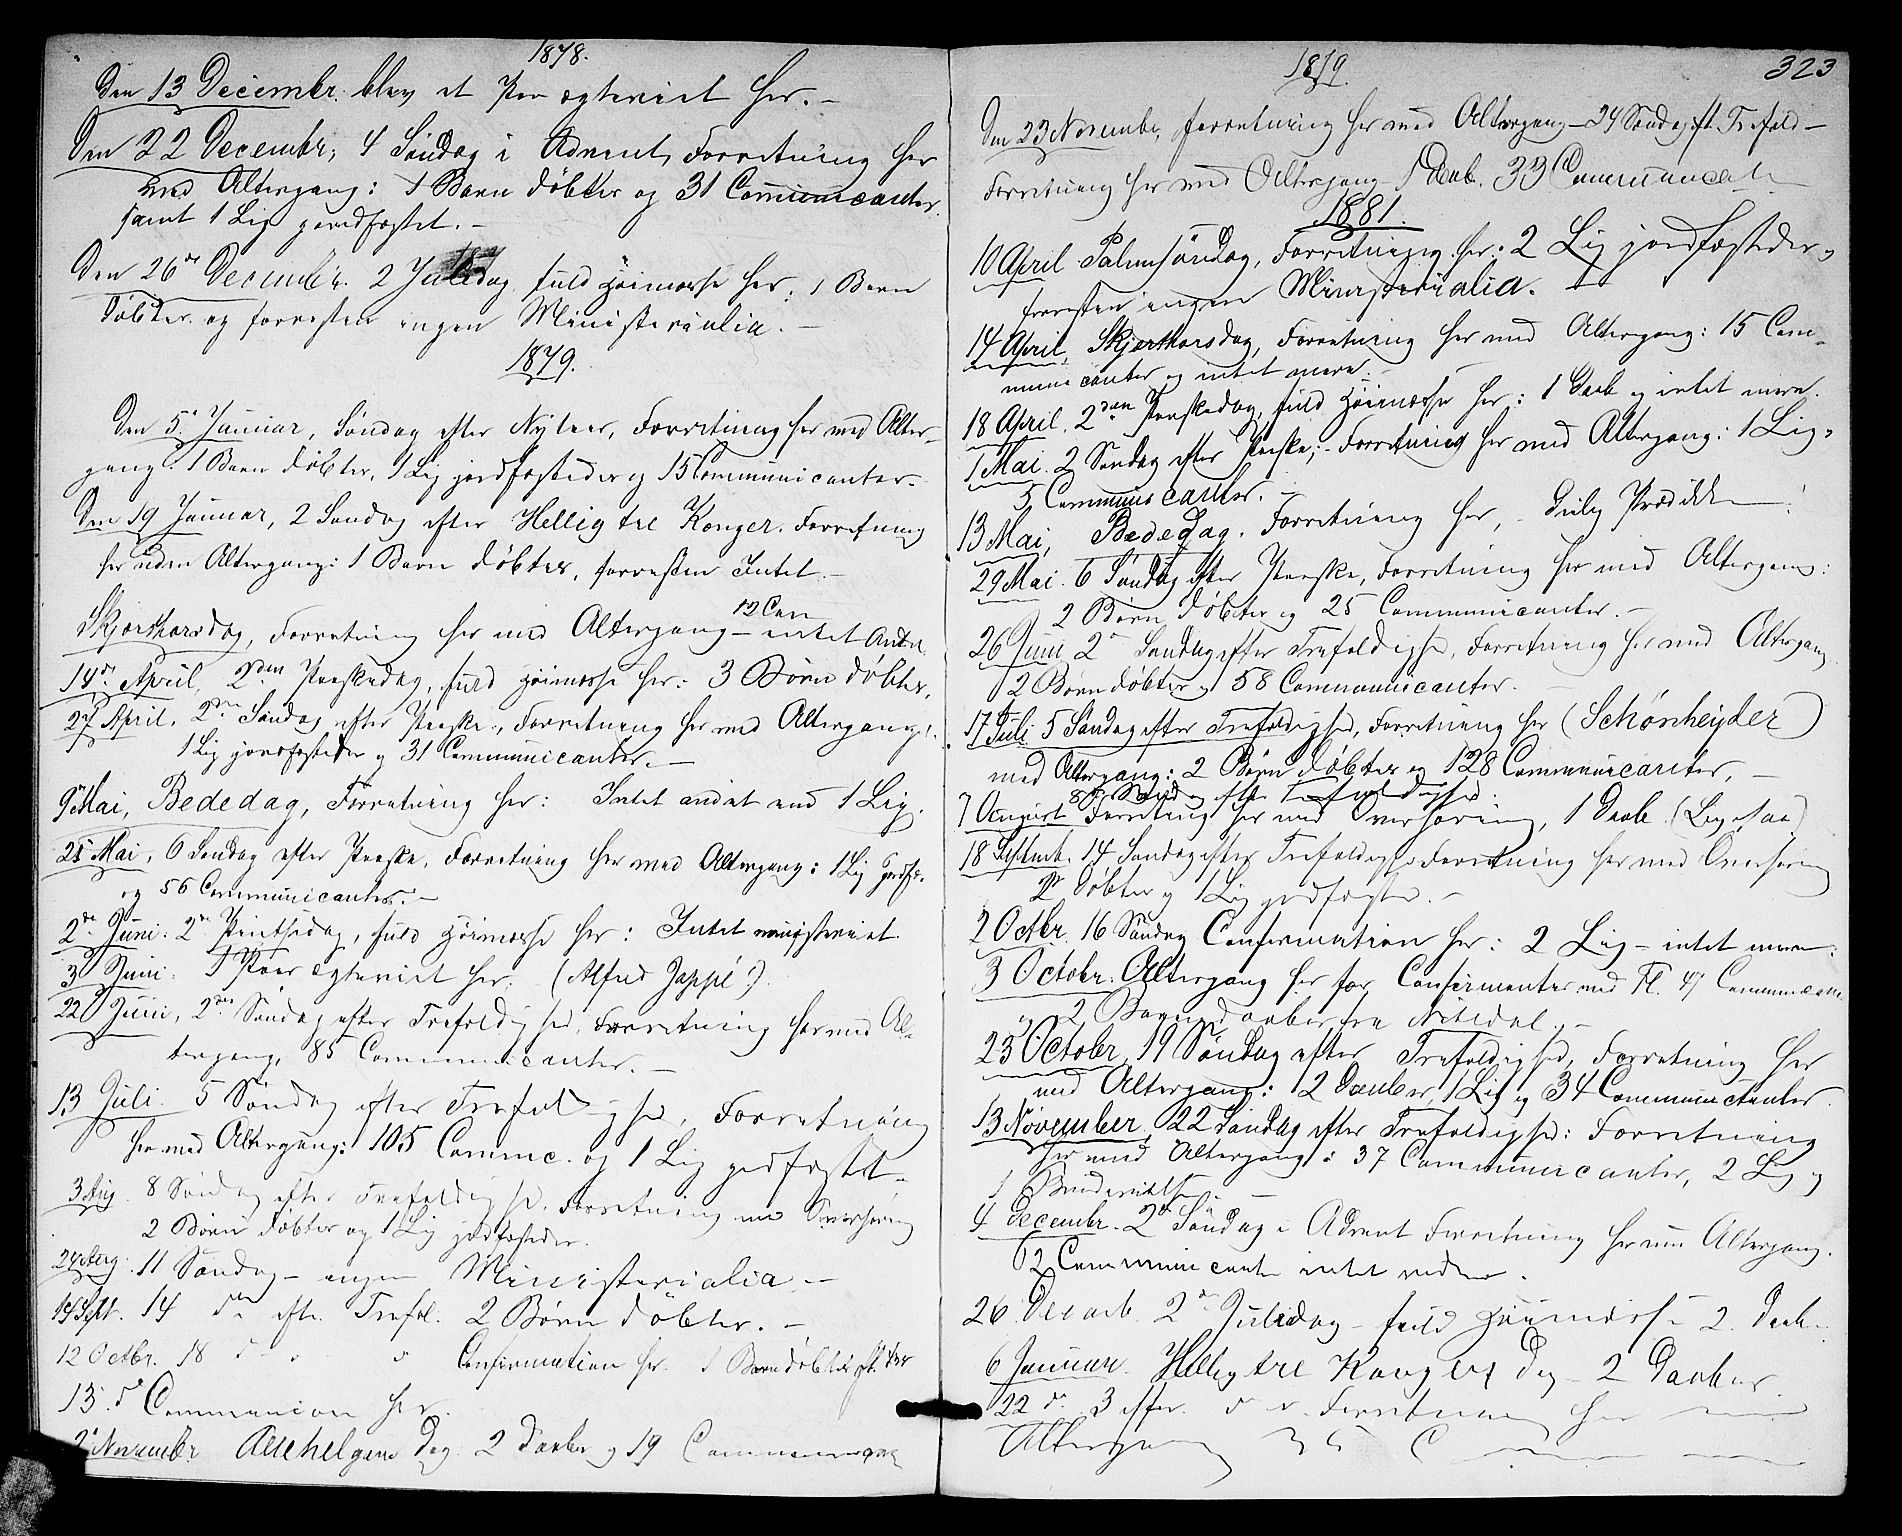 1878.
Den 13 Decembr. blev et Par ægteviet her. -
Den 22 Decembr, 4 Søndag i Advent, Forretning her
med Altergang: 1 Barn døbtes og 31 Communicanter.
samt 1 Lig jordfæstet. -
Den 26de Decembr. 2 Juledag fuld Høimesse her: 1 Barn
døbtes. og forresten ingen Ministerialia. -
1879.
Den 5. Januar, Søndag efter Nytaar, Forretning her med Alter-
gang: 1 Barn døbtes, 1 Lig jordfæstedes og 15 Communicanter. -
Den 19 Januar, 2 Søndag efter Hellig tre Konger. Forretning
her uden Altergang: 1 Barn døbtes, forresten Intet. -
12 Com
Skjærthorsdag, Forretning her med Altergang - intet Andet.
14de April, 2den Paaskedag, fuld Høimesse her: 3 Børn døbtes.
27 April, 2den Søndag efter Paaske, Forretning her med Altergang:
1 Lig jordfæstedes og 31 Communicanter. -
9 Mai, Bededag, Forretning her: Intet andet end 1 Lig.
25 Mai, 6 Søndag efter Paaske, Forretning her med Altergang: 1 Lig jordf.
og 56 Communicanter. -
2de Juni. 2den Pintsedag, fuld Høimesse her: Intet ministeriet.
3 Juni. 1 Paar ægteviet her. (Alfred Jappé!).
22 Juni, 2den Søndag efter Trefoldighed, Forretning her med Al-
tergang, 85 Communicanter. -
13 Juli. 5 Søndag efter Trefoldighed, Forretning
her med Altergang: 105 Commc. og 1 Lig jordfæstet -
3 Aug. 8 Søndag efter Trefoldighed, Forretning med Overhøring
2 Børn døbtes og 1 Lig jordfæstedes.
24 Aug. 11 Søndag - ingen Ministerialia. -
14 Septr. 14 do efter Trefol. 2 Børn døbtes. -
12 Octbr. 18 do Confirmation her. 1 Barn døbtes
13. do Communion her.
2 Novembr Allehelgens Dag. 2 Daaber og 19
1879.
323
Den 23 November, Forretning her med Altergang - 24 Søndag eft. Trefold -
Forretning her med Altergang 1 Daab. 33 Communicanter
1881.
10 April Palmesøndag, Forretning her: 2 Lig jordfæstedes,
forresten ingen Ministerialia.
14 April, Skjærthorsdag, Forretning her med Altergang: 15 Com-
municanter og intet mere.
18 April. 2den Paaskedag, fuld Høimesse her: 1 Daab og intet mere.
1 Mai. 2 Søndag efter Paaske, - Forretning her med Altergang: 1 Lig,
5 Communicanter. -
13 Mai, Bededag. Forretning her, - Prædiken
29 Mai. 6 Søndag efter Paaske, Forretning her med Altergang:
2 Børn døbtes og 25 Communicanter. -
26 Juni 2 Søndag efter Trefoldighed, Forretning her med Altergang
2 Børn døbtes og 58 Communicanter.
17 Juli. 5 Søndag efter Trefoldighed, Forretning her (Schønheyder)
med Altergang: 2 Børn døbtes og 128 Communicanter. -
8de Søndag efter Trefoldighed.
7 August Forretning her med Overhøring, 1 Daab.
18 Septemb. 14 Søndag efter Trefoldighed Forretning her med Overhøring
2 døbtes og 1 Lig jordfæstet. -
2 Octbr. 16 Søndag Confirmation her: 2 Lig - intet mere.
3 Octobr. Altergang her for Confirmanter med Fl. 47 Communican
og 2 fra Nitedal. -
23 Octobr, 19 Søndag efter Trefoldighed, Forretning her
med Altergang: 12 Daaber, 1 Lig og 34 Communicanter.
13 November, 22 Søndag efter Trefoldighed: Forretning
her med Altergang: 37 Communicanter, 2 Lig og
1 Brudevielse. -
4 Decembr. 2den Søndag i Advent Forretning her med Altergang.
12 Communicanter intet videre.
26 Decemb. 2den Juledag - fuld Høimesse 2 Daab.
6 Januar. Hellig tre Kongers Dag - 2 Daaber.
22 do 3 efter do Forretning her med
Altergang 35 C